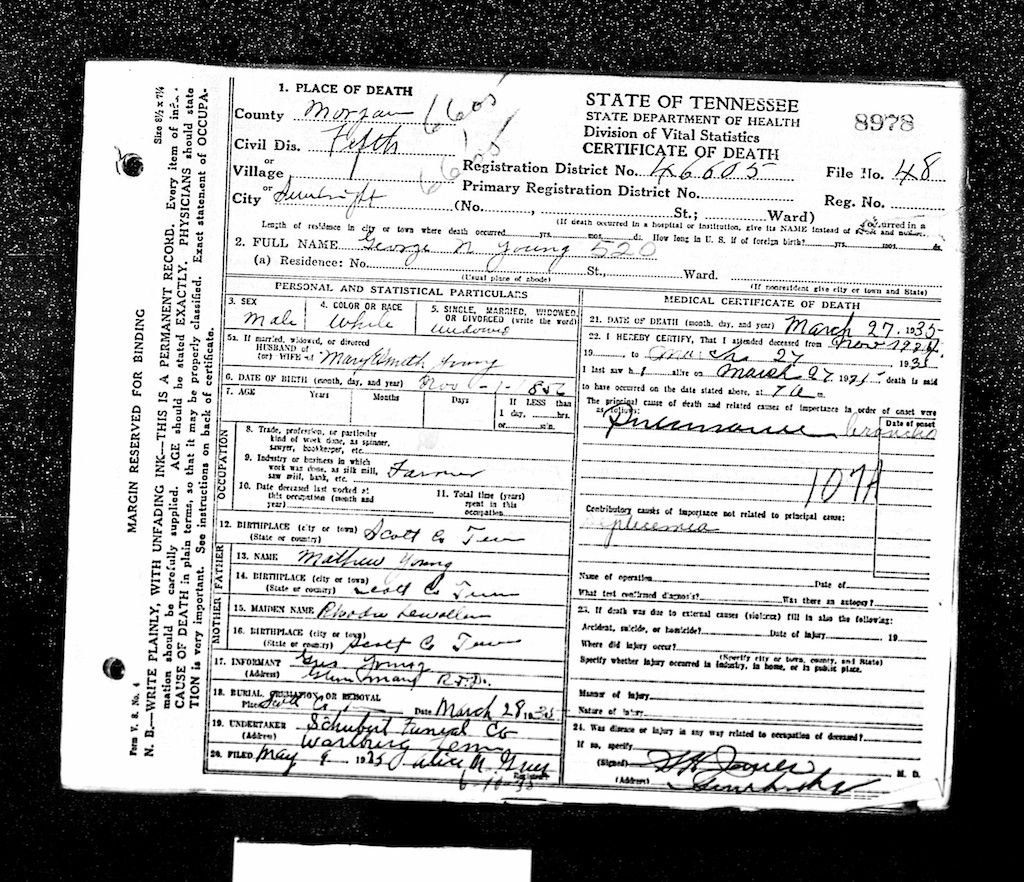 1. PLACE OF DEATH
County Morgan
Civil Dis. Fifth
or
Village
or
City Sunbright (No. , St.; Ward)
STATE OF TENNESSEE
STATE DEPARTMENT OF HEALTH
Division of Vital Statistics
CERTIFICATE OF DEATH
8978
Registration District No. 46605 File No. 48
Primary Registration District No. Reg. No.
(If death occurred in a hospital or institution, give its NAME instead of street and number.)
Length of residence in city or town where death occurred yrs. mos. ds. How long in U. S. if of foreign birth? yrs. mos. ds.
2. FULL NAME George N Young 520
(a) Residence: No. St., Ward.
(Usual place of abode) (If nonresident give city or town and State)
PERSONAL AND STATISTICAL PARTICULARS
3. SEX
Male
4. COLOR OR RACE
White
5. SINGLE, MARRIED, WIDOWED, OR DIVORCED (write the word)
Widowed
5a. If married, widowed, or divorced
HUSBAND of
(or) WIFE of Mary Smith Young
6. DATE OF BIRTH (month, day, and year) Nov -1-1856
7. AGE Years Months Days If LESS than
1 day, hrs.
or min.
OCCUPATION
8. Trade, profession, or particular
kind of work done, as spinner,
sawyer, bookkeeper, etc.
9. Industry or business in which
work was done, as silk mill,
saw mill, bank, etc. Farmer
10. Date deceased last worked at
this occupation (month and
year)
11. Total time (years)
spent in this
occupation
12. BIRTHPLACE (city or town) Scott Co Tenn
(State or country)
FATHER
13. NAME Mathew Young
14. BIRTHPLACE (city or town) Scott Co Tenn
(State or country)
MOTHER
15. MAIDEN NAME Rhoda Lewallen
16. BIRTHPLACE (city or town) Scott Co Tenn
(State or country)
17. INFORMANT Gus Young
(Address) Glenmary R.F.D.
18. BURIAL, CREMATION OR REMOVAL
Place Scott Co Date March 28 1935
19. UNDERTAKER Schubert Funeral Co
(Address) Wartburg Tenn
20. FILED May 9 1935 Alice M.
Registrar
6-10-35
MEDICAL CERTIFICATE OF DEATH
21. DATE OF DEATH (month, day, and year) March 27, 1935
22. I HEREBY CERTIFY, That I attended deceased from Nov 1934
19 to March 27 1935
I last saw h alive on March 27, 193 , death is said
to have occurred on the date stated above, at 7 a m.
The principal cause of death and related causes of importance in order of onset were
as follows:
Date of onset
Pneumonia broncho
107A
Contributory causes of importance not related to principal cause:
Name of operation Date of
What test confirmed diagnosis? Was there an autopsy?
23. If death was due to external causes (violence) fill in also the following:
Accident, suicide, or homicide? Date of injury 19
Where did injury occur?
(Specify city or town, county, and State)
Specify whether injury occurred in industry, in home, or in public place.
Manner of injury
Nature of injury
24. Was disease or injury in any way related to occupation of deceased?
If so, specify
(Signed) Jones M. D.
(Address) Sunbright
MARGIN RESERVED FOR BINDING
Size 8½ x 7¼
N. B.—WRITE PLAINLY, WITH UNFADING INK—THIS IS A PERMANENT RECORD. Every item of infor-
mation should be carefully supplied. AGE should be stated EXACTLY. PHYSICIANS should state
CAUSE OF DEATH in plain terms, so that it may be properly classified. Exact statement of OCCUPA-
TION is very important. See instructions on back of certificate.
Form V. S. No. 4